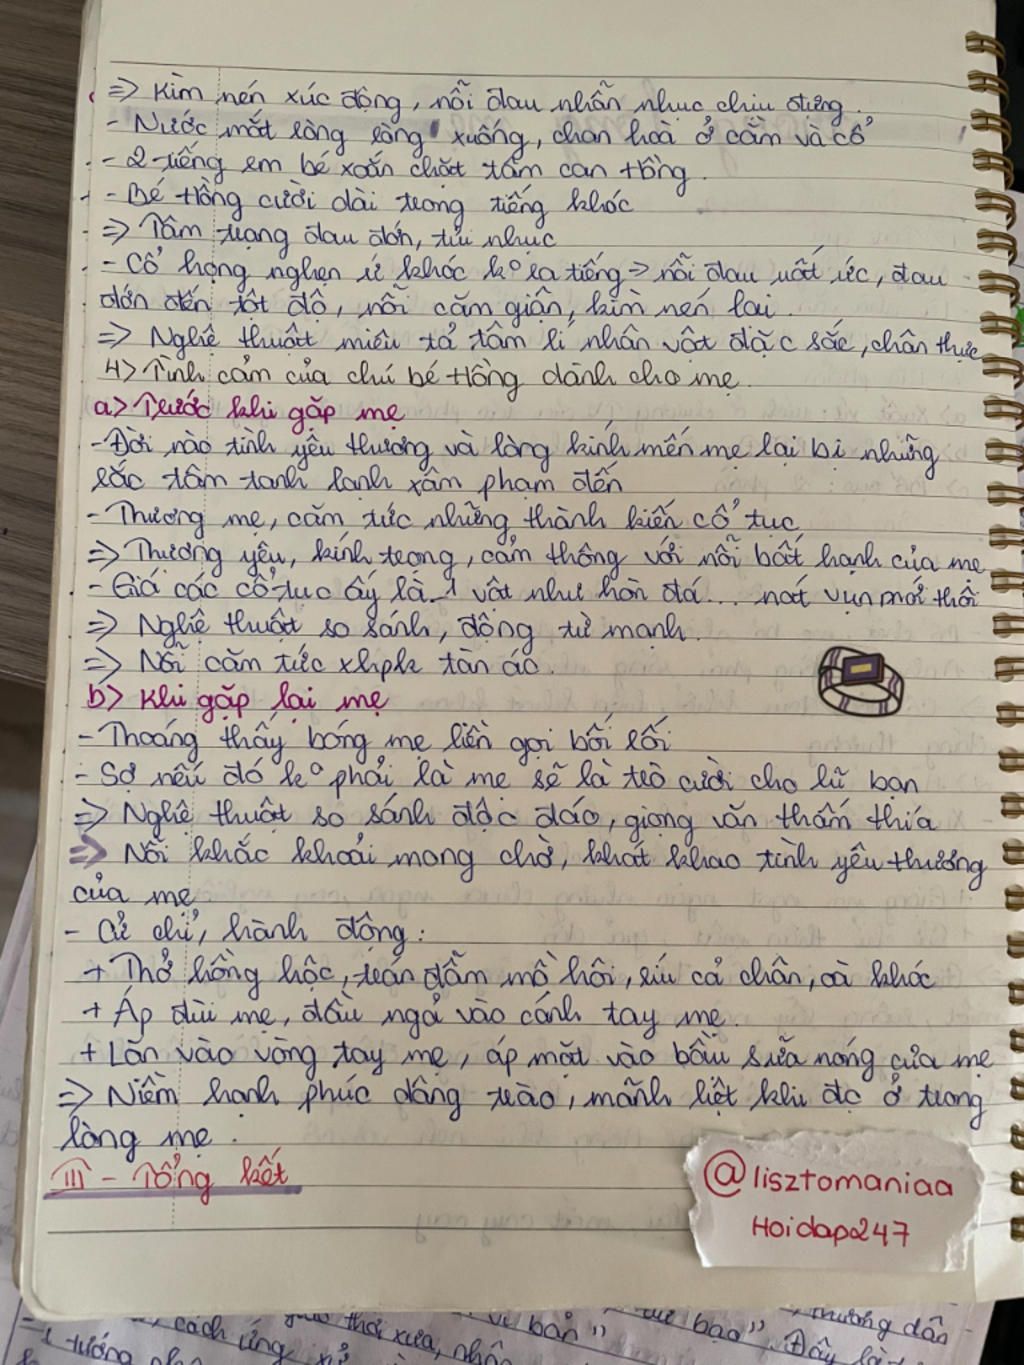 => Kìm nén xúc động, nỗi đau nhẫn nhục chịu đựng.
- Nước mắt ròng ròng xuống, chan hoà ở cằm và cổ
- 2 tiếng em bé xoắn chặt tâm can Hồng.
- Bé Hồng cười dài trong tiếng khóc
=> Tâm trạng đau đớn, tủi nhục
- Cổ họng nghẹn ứ khóc k° ra tiếng => nỗi đau uất ức, đau
đớn đến tột độ, nỗi căm giận, kìm nén lại.
=> Nghệ thuật miêu tả tâm lí nhân vật đặc sắc, chân thực
4> Tình cảm của chú bé Hồng dành cho mẹ.
a> Trước khi gặp mẹ
- Đời nào tình yêu thương và lòng kính mến mẹ lại bị những
rắc tâm tanh lạnh xâm phạm đến
- Thương mẹ, căm tức những thành kiến cổ tục
=> Thương yêu, kính trọng, cảm thông với nỗi bất hạnh của mẹ
- Giá các cổ tục ấy là 1 vật như hòn đá... nát vụn mới thôi
=> Nghệ thuật so sánh, động từ mạnh.
=> Nỗi căm tức xhpk tàn ác.
b> Khi gặp lại mẹ
- Thoáng thấy bóng mẹ liền gọi bối rối
- Sợ nếu đó k° phải là mẹ sẽ là trò cười cho lũ bạn
=> Nghệ thuật so sánh độc đáo, giọng văn thấm thía
=> Nỗi khắc khoải mong chờ, khát khao tình yêu thương
của mẹ
- Cử chỉ, hành động:
+ Thở hồng hộc, trán đẫm mồ hôi, ríu cả chân, oà khóc
+ Áp đùi mẹ, đầu ngả vào cánh tay mẹ.
+ Lăn vào vòng tay mẹ, áp mặt vào bầu sữa nóng của mẹ
=> Niềm hạnh phúc dâng trào, mãnh liệt khi đc ở trong
lòng mẹ.
III - Tổng kết
@lisztomaniaa
Hoidap247
cách ứng
thời xưa, nhân
văn bản"
bạo". Đây là
thương dân